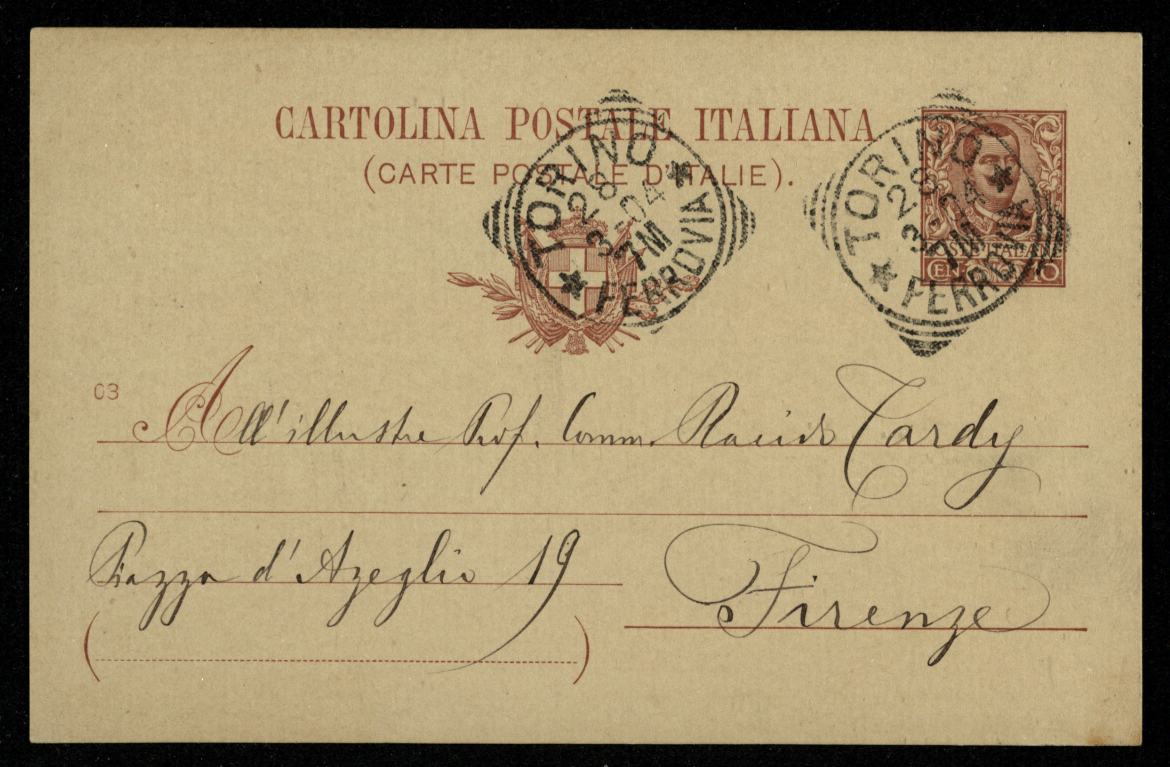 CARTOLINA POSTALE ITALIANA
(CARTE POSTALE D'ITALIE).
TORINO
28
3-04
7M
FERROVIA
TORINO
28
3-04
7M
FERROVIA
POSTE ITALIANE
03
All'illustre Prof. Comm. Placido Tardy
Piazza d'Azeglio 19
Firenze